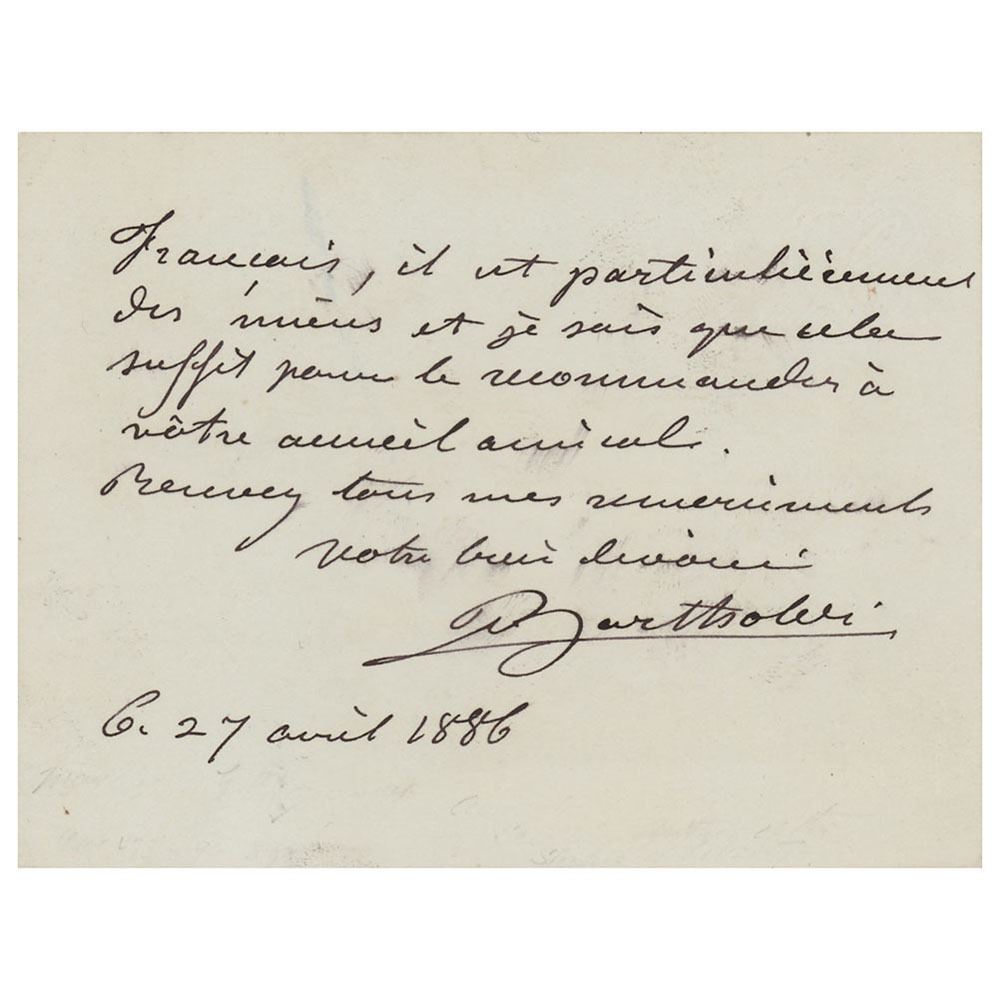 Français, il est particulièrement
des miens et je sais que cela
suffit pour le recommander à
vôtre accueil amical.
Recevez tous mes remerciments
votre bien dévoué
Bartholdi
27 avril 1886